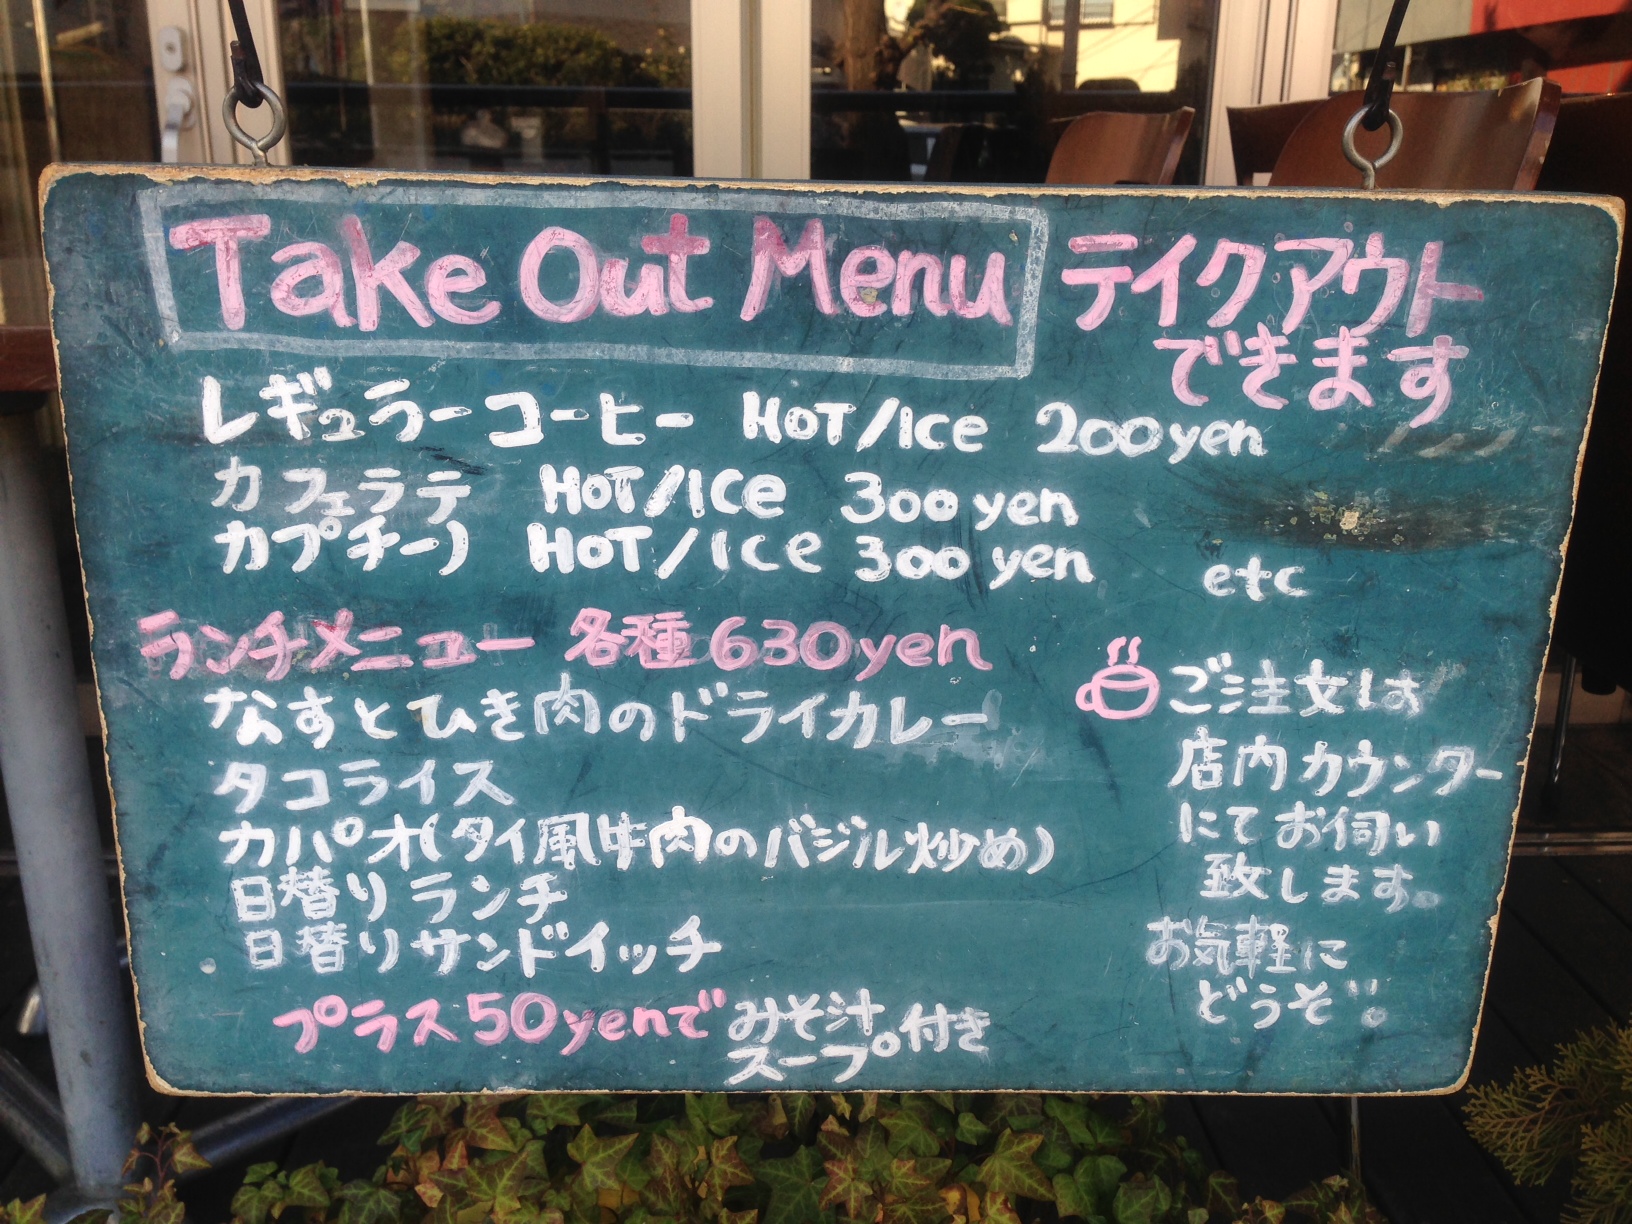 Take Out Menu テイクアウト
できます
レギュラーコーヒー HOT/ICe 200yen
カフェラテ HOT/ICe 300yen
カプチーノ HOT/ICe 300yen etc
ランチメニュー 各種630yen
なすとひき肉のドライカレー
タコライス
カパオ(タイ風牛肉のバジル炒め)
日替りランチ
日替りサンドイッチ
プラス50yenで みそ汁
スープ 付き
ご注文は
店内カウンター
にてお伺い
致します。
お気軽に
どうぞ